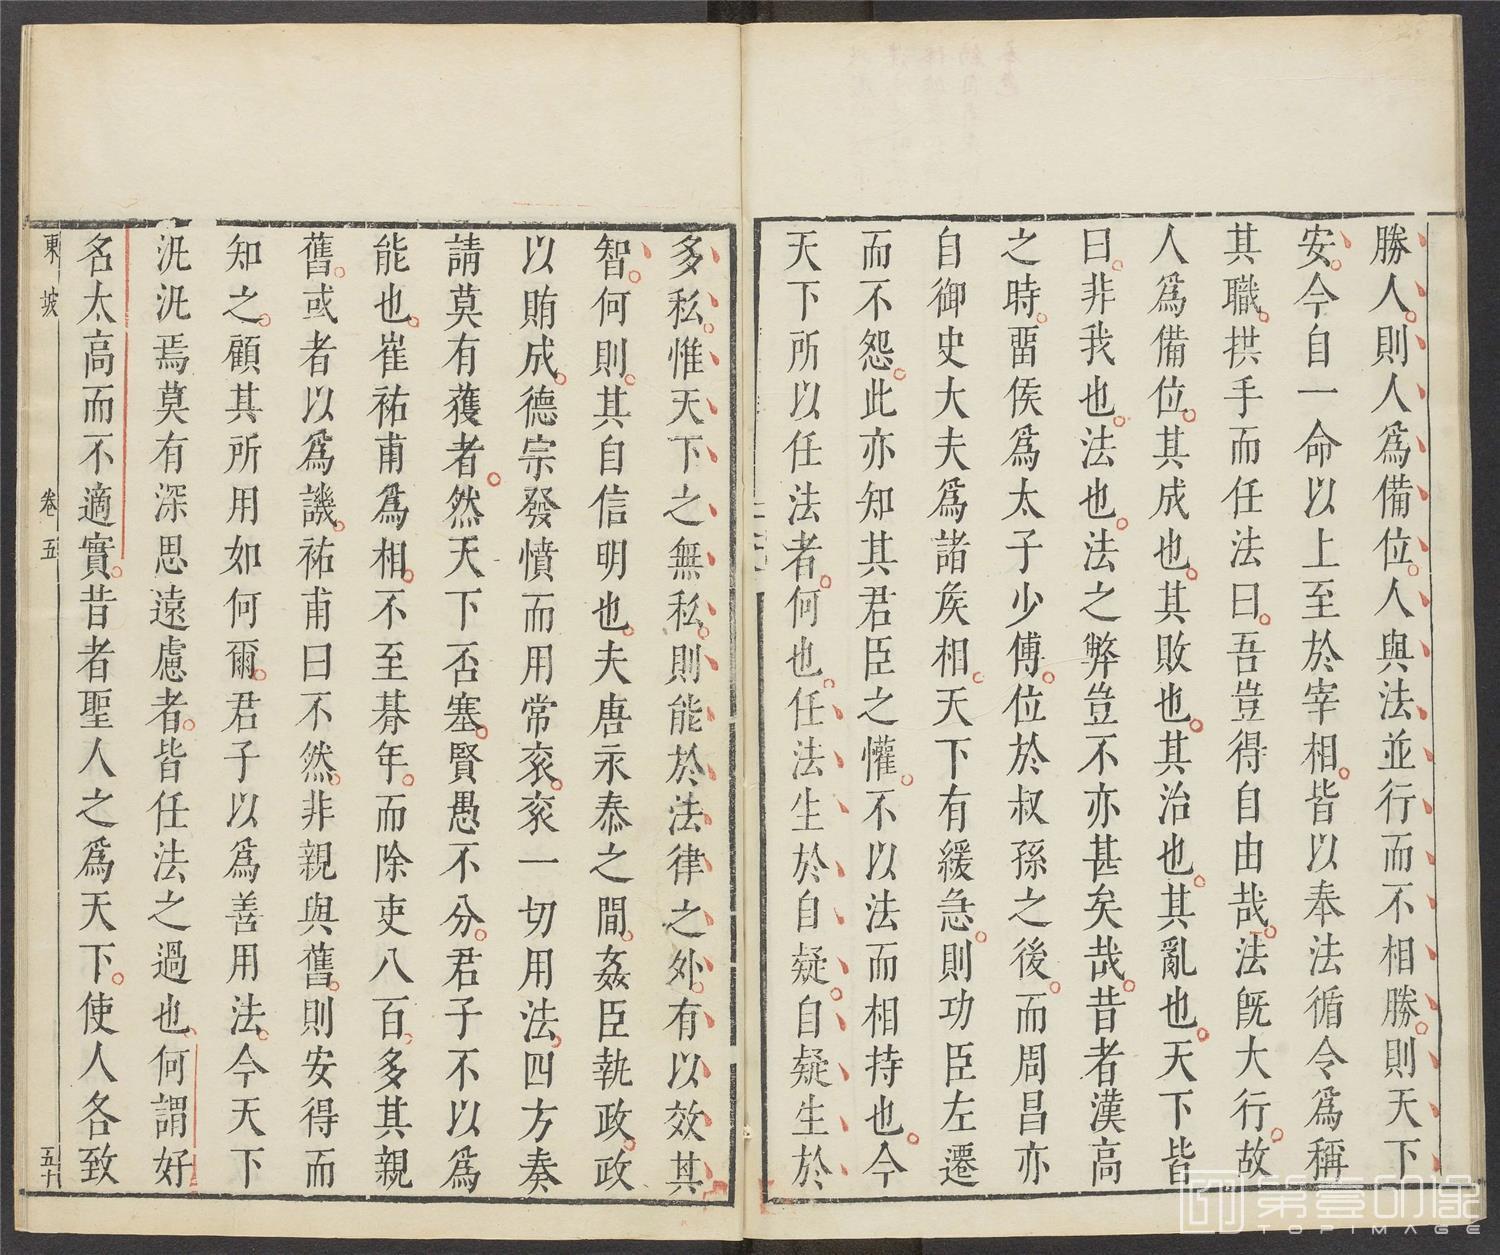 勝人則人爲備位人與法並行而不相勝則天下
安今自一命以上至於宰相皆以奉法循令爲稱
其職拱手而任法曰吾豈得自由哉法旣大行故
人爲備位其成也其敗也其治也其亂也天下皆
曰非我也法也法之弊豈不亦甚矣哉昔者漢高
之時畱侯爲太子少傅位於叔孫之後而周昌亦
自御史大夫爲諸矦相天下有緩急則功臣左遷
而不怨此亦知其君臣之懽不以法而相持也今
天下所以任法者何也任法生於自疑自疑生於
多私惟天下之無私則能於法律之外有以效其
智何則其自信明也夫唐永泰之間姦臣執政政
以賄成德宗發憤而用常衮衮一切用法四方奏
請莫有獲者然天下否塞賢愚不分君子不以爲
能也崔祐甫爲相不至朞年而除吏八百多其親
舊或者以爲譏祐甫曰不然非親與舊則安得而
知之顧其所用如何爾君子以爲善用法今天下
汎汎焉莫有深思遠慮者皆任法之過也何謂好
名太高而不適實昔者聖人之爲天下使人各致
東坡 卷五 五十
第壹印像
TOPIMAGE